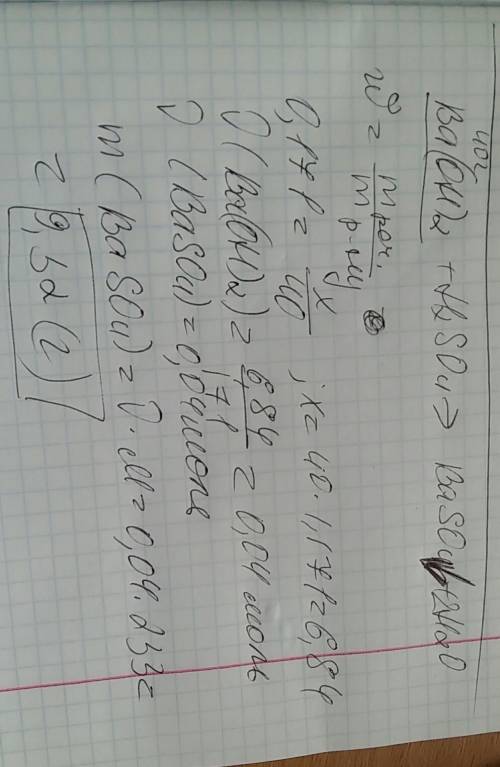 40г
Ba(OH)2 + H2SO4 → BaSO4↓ + 2H2O
ω = m раст. / m р-ну
0,171 = x / 40 ; x = 40 · 1,171 = 6,84
ν (Ba(OH)2) = 6,84 / 171 = 0,04 моль
ν (BaSO4) = 0,04 моль
m (BaSO4) = ν · M = 0,04 · 233 =
= 9,32 (г)